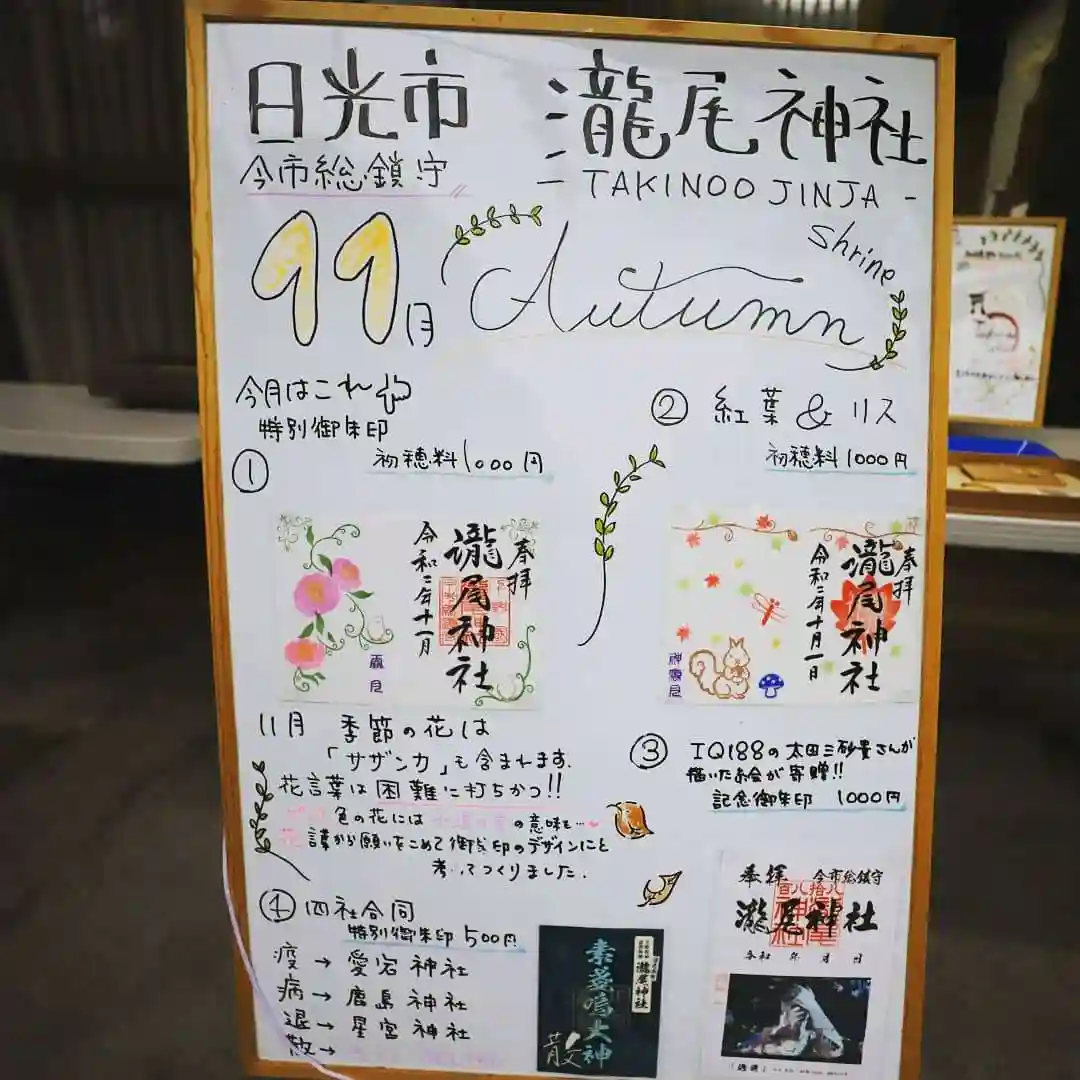 日光市 瀧尾神社
今市総鎮守
- TAKINOO JINJA -
shrine
11月 Autumn
今月はこれ
特別御朱印
① 初穂料1000円
奉拝
瀧尾神社
令和二年十一月
霜月
② 紅葉 & リス
初穂料1000円
奉拝
瀧尾神社
令和二年十月一日
11月 季節の花は
「サザンカ」も含まれます.
花言葉は困難に打ちかつ!!
色の花には の意味も…
考えてつくりました.
③ IQ188の太田三砂貴さんが
描いたお絵が寄贈!!
記念御朱印 1000円
奉拝 今市総鎮守
瀧尾神社
令和 年 月 日
④ 四社合同
特別御朱印 500円
疫→愛宕神社
病→鹿島神社
退→星宮神社
散→
瀧尾神社
素盞嗚大神
散